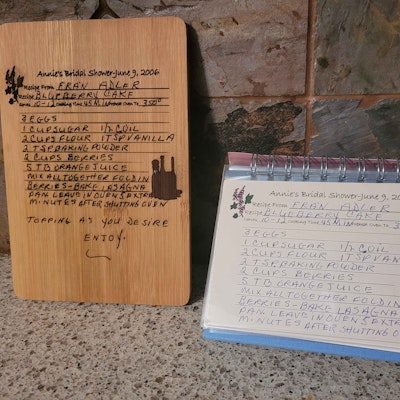 Annie's Bridal Shower-June 9, 2006
Recipe From: FRAN ADLER
Recipe: BLUEBERRY CAKE
Serves: 10-12 Cooking Time: 45 MIN Preheat Oven To: 350°
3 EGGS
1 CUP SUGAR 1/2 C OIL
2 CUPS FLOUR 1 TSP VANILLA
2 TSP BAKING POWDER
2 CUPS BERRIES
5 TB ORANGE JUICE
MIX ALL TOGETHER FOLD IN
BERRIES-BAKE LASAGNA
PAN LEAVE IN OVEN 5 EXTRA
MINUTES AFTER SHUTTING OVEN
TOPPING AS YOU DESIRE
ENJOY
Annie's Bridal Shower-June 9, 2006
Recipe From: FRAN ADLER
Recipe: BLUEBERRY CAKE
3 EGGS
1 CUP SUGAR 1/2 C OIL
2 CUPS FLOUR 1 TSP VANILLA
2 TSP BAKING POWDER
2 CUPS BERRIES
5 TB ORANGE JUICE
MIX ALL TOGETHER FOLD IN
BERRIES-BAKE LASAGNA
PAN LEAVE IN OVEN 5 EXTRA
MINUTES AFTER SHUTTING OVEN